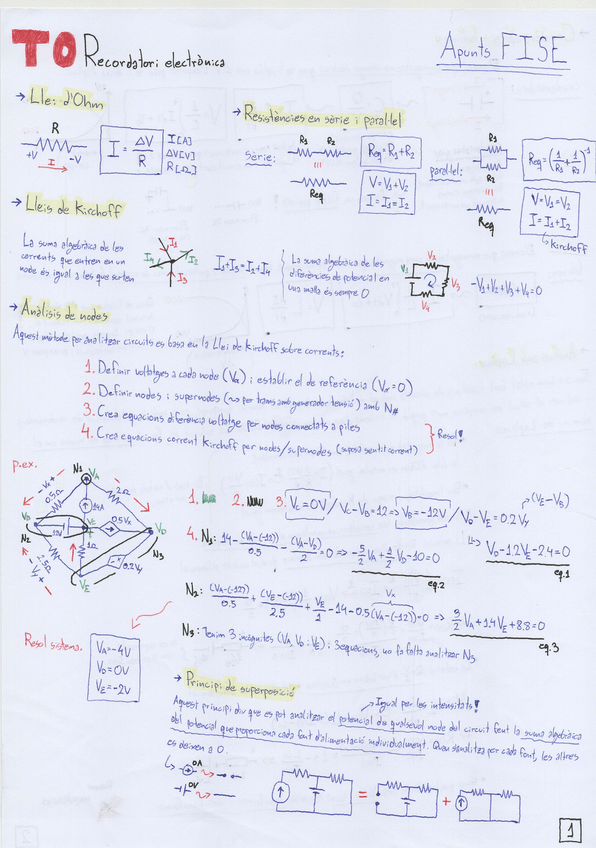 T0 Recordatori electrònica
Apunts FISE
→ Llei d'Ohm
R
+V I -V
I = ΔV / R
I [A]
ΔV [V]
R [Ω]
→ Resistències en sèrie i paral·lel
sèrie:
R1 R2
Req
Req = R1 + R2
V = V1 + V2
I = I1 = I2
paral·lel:
R1
R2
Req
Req = (1/R1 + 1/R2)^-1
V = V1 = V2
I = I1 + I2
Kirchoff
→ Lleis de Kirchoff
La suma algebràica de les
corrents que entren en un
node és igual a les que surten
I1
I2
I3
I4
I1 + I3 = I2 + I4
La suma algebràica de les
diferències de potencial en
una malla és sempre 0
V1
V2
V3
V4
-V1+V2+V3+V4=0
→ Anàlisis de nodes
Aquest mètode per analitzar circuits es basa en la Llei de Kirchoff sobre corrents:
1. Definir voltatges a cada node (Vα) i establir el de referència (Vα=0)
2. Definir nodes i supernodes (↝ per trams amb generador tensió) amb N#
3. Crea equacions diferència voltatge per nodes connectats a piles
4. Crea equacions corrent Kirchoff per nodes/supernodes (suposa sentit corrent)
Resol!
p.ex.
N1
VA
0.5Ω
2Ω
14A
VB
12V
0.5Vx
VD
N2
2.5Ω
1Ω
0.2Vy
N3
VE
1. 2. 3. Vc=0V / Vc-VB=12 => VB=-12V / VD-VE=0.2Vy
(VE-VB)
↳ VD-1.2VE-2.4=0
eq.1
4. N1: 14 - (VA-(-12))/0.5 - (VA-VD)/2 = 0 => -5/2 VA + 1/2 VD - 10 = 0
eq.2
Vx
N2: (VA-(-12))/0.5 + (VE-(-12))/2.5 + VE/1 - 14 - 0.5(VA-(-12)) = 0 => 3/2 VA + 1.4VE + 8.8 = 0
eq.3
N3: Tenim 3 incògnites (VA, VD i VE) i 3 equacions, no fa falta analitzar N3
Resol sistema.
VA=-4V
VD=0V
VE=-2V
→ Principi de superposició
Igual per les intensitats!
Aquest principi diu que es pot analitzar el potencial de qualsevol node del circuit fent la suma algebràica
del potencial que proporciona cada font d'alimentació individualment. Quan s'analitza per cada font, les altres
es deixen a 0.
0A
0V
= +
1